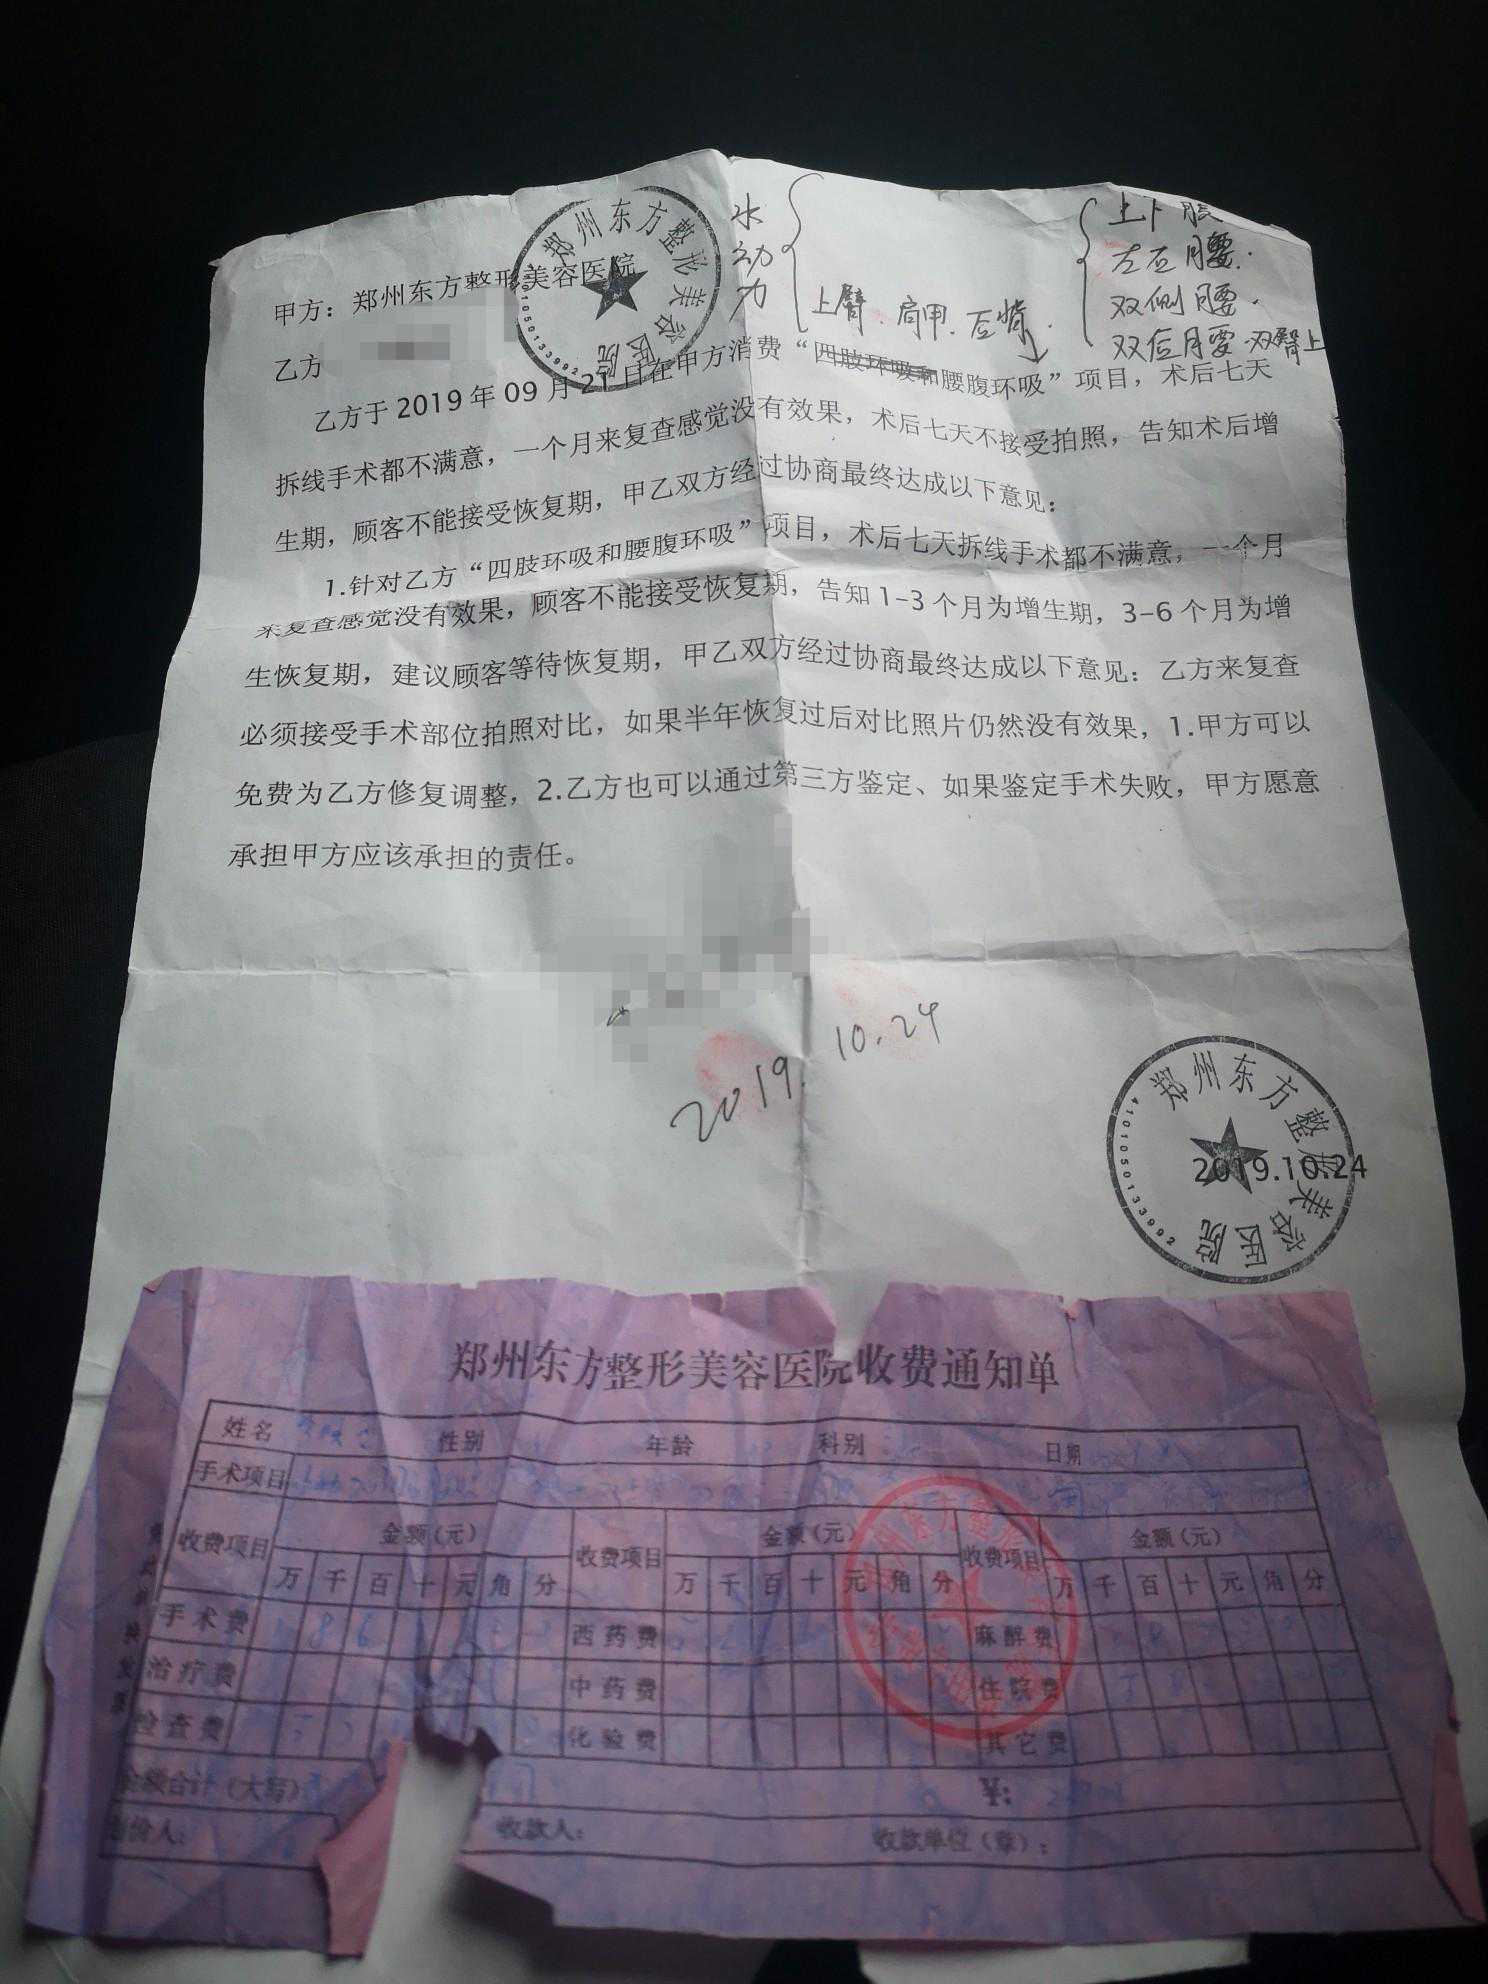 郑州东方整形美容医院
4101050133992
水动力
上臂、肩甲、后背、
上下腹
左右腰、
双侧腰、
双后腰、双臀上
甲方：郑州东方整形美容医院
乙方
乙方于2019年09月21日在甲方消费“四肢环吸和腰腹环吸”项目，术后七天
拆线手术都不满意，一个月来复查感觉没有效果，术后七天不接受拍照，告知术后增
生期，顾客不能接受恢复期，甲乙双方经过协商最终达成以下意见：
1.针对乙方“四肢环吸和腰腹环吸”项目，术后七天拆线手术都不满意，一个月
来复查感觉没有效果，顾客不能接受恢复期，告知1-3个月为增生期，3-6个月为增
生恢复期，建议顾客等待恢复期，甲乙双方经过协商最终达成以下意见：乙方来复查
必须接受手术部位拍照对比，如果半年恢复过后对比照片仍然没有效果，1.甲方可以
免费为乙方修复调整，2.乙方也可以通过第三方鉴定、如果鉴定手术失败，甲方愿意
承担甲方应该承担的责任。
2019.10.24
郑州东方整形美容医院
4101050133992
2019.10.24
郑州东方整形美容医院收费通知单
姓名 性别 年龄 科别 日期
手术项目
收费项目 金额（元） 收费项目 金额（元） 收费项目 金额（元）
万 千 百 十 元 角 分 万 千 百 十 元 角 分 万 千 百 十 元 角 分
手术费 西药费 麻醉费
治疗费 中药费 住院费
检查费 化验费 其它费
金额合计（大写） ¥:
划价人： 收款人： 收款单位（章）：